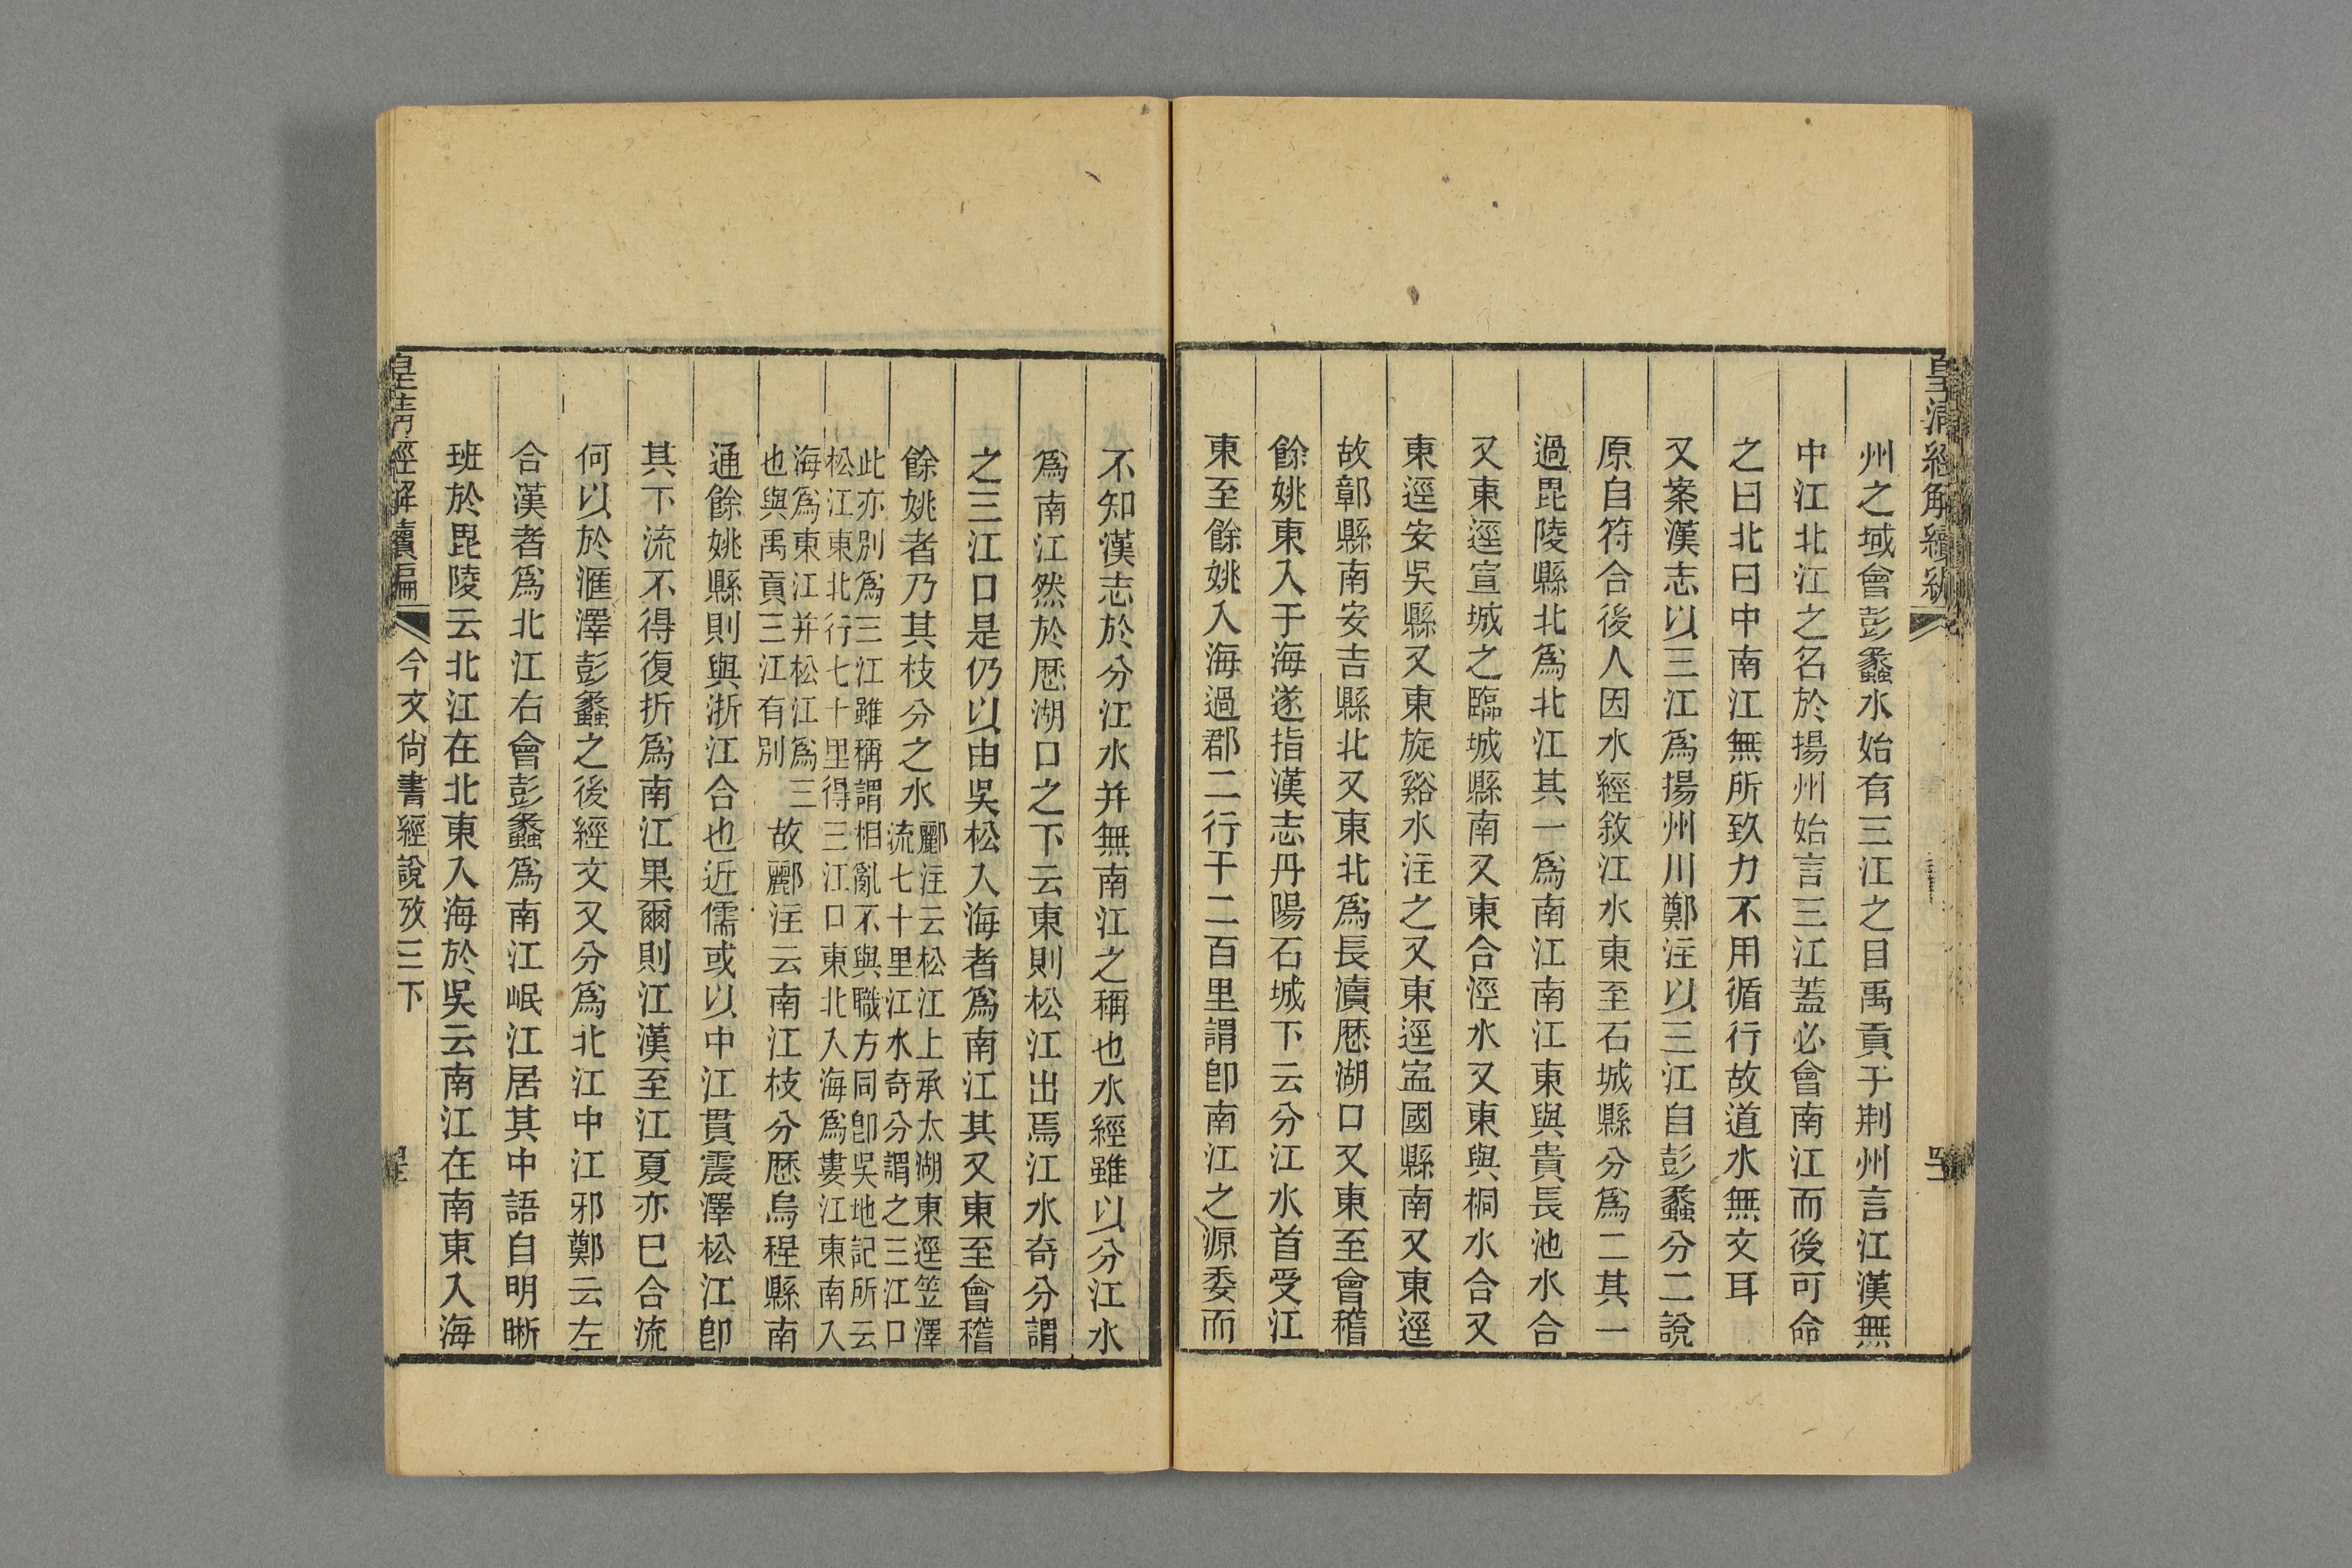 皇清經解續編
州之域會彭蠡水始有三江之目禹貢于荆州言江漢無
中江北江之名於揚州始言三江蓋必會南江而後可命
之曰北曰中南江無所致力不用循行故道水無文耳
又案漢志以三江爲揚州川鄭注以三江自彭蠡分二說
原自符合後人因水經敘江水東至石城縣分爲二其一
過毘陵縣北爲北江其一爲南江南江東與貴長池水合
又東逕宣城之臨城縣南又東合涇水又東與桐水合又
東逕安吳縣又東旋谿水注之又東逕寍國縣南又東逕
故鄣縣南安吉縣北又東北爲長瀆歷湖口又東至會稽
餘姚東入于海遂指漢志丹陽石城下云分江水首受江
東至餘姚入海過郡二行千二百里謂卽南江之源委而
不知漢志於分江水并無南江之稱也水經雖以分江水
爲南江然於歷湖口之下云東則松江出焉江水奇分謂
之三江口是仍以由吳松入海者爲南江其又東至會稽
餘姚者乃其枝分之水酈注云松江上承太湖東逕笠澤
流七十里江水奇分謂之三江口
此亦別爲三江雖稱謂相亂不與職方同卽吳地記所云
松江東北行七十里得三江口東北入海爲婁江東南入
海爲東江并松江爲三
也與禹貢三江有別
故酈注云南江枝分歷烏程縣南
通餘姚縣則與浙江合也近儒或以中江貫震澤松江卽
其下流不得復折爲南江果爾則江漢至江夏亦已合流
何以於滙澤彭蠡之後經文又分爲北江中江邪鄭云左
合漢者爲北江右會彭蠡爲南江岷江居其中語自明晰
班於毘陵云北江在北東入海於吳云南江在南東入海
皇清經解續編 今文尙書經說攷三下